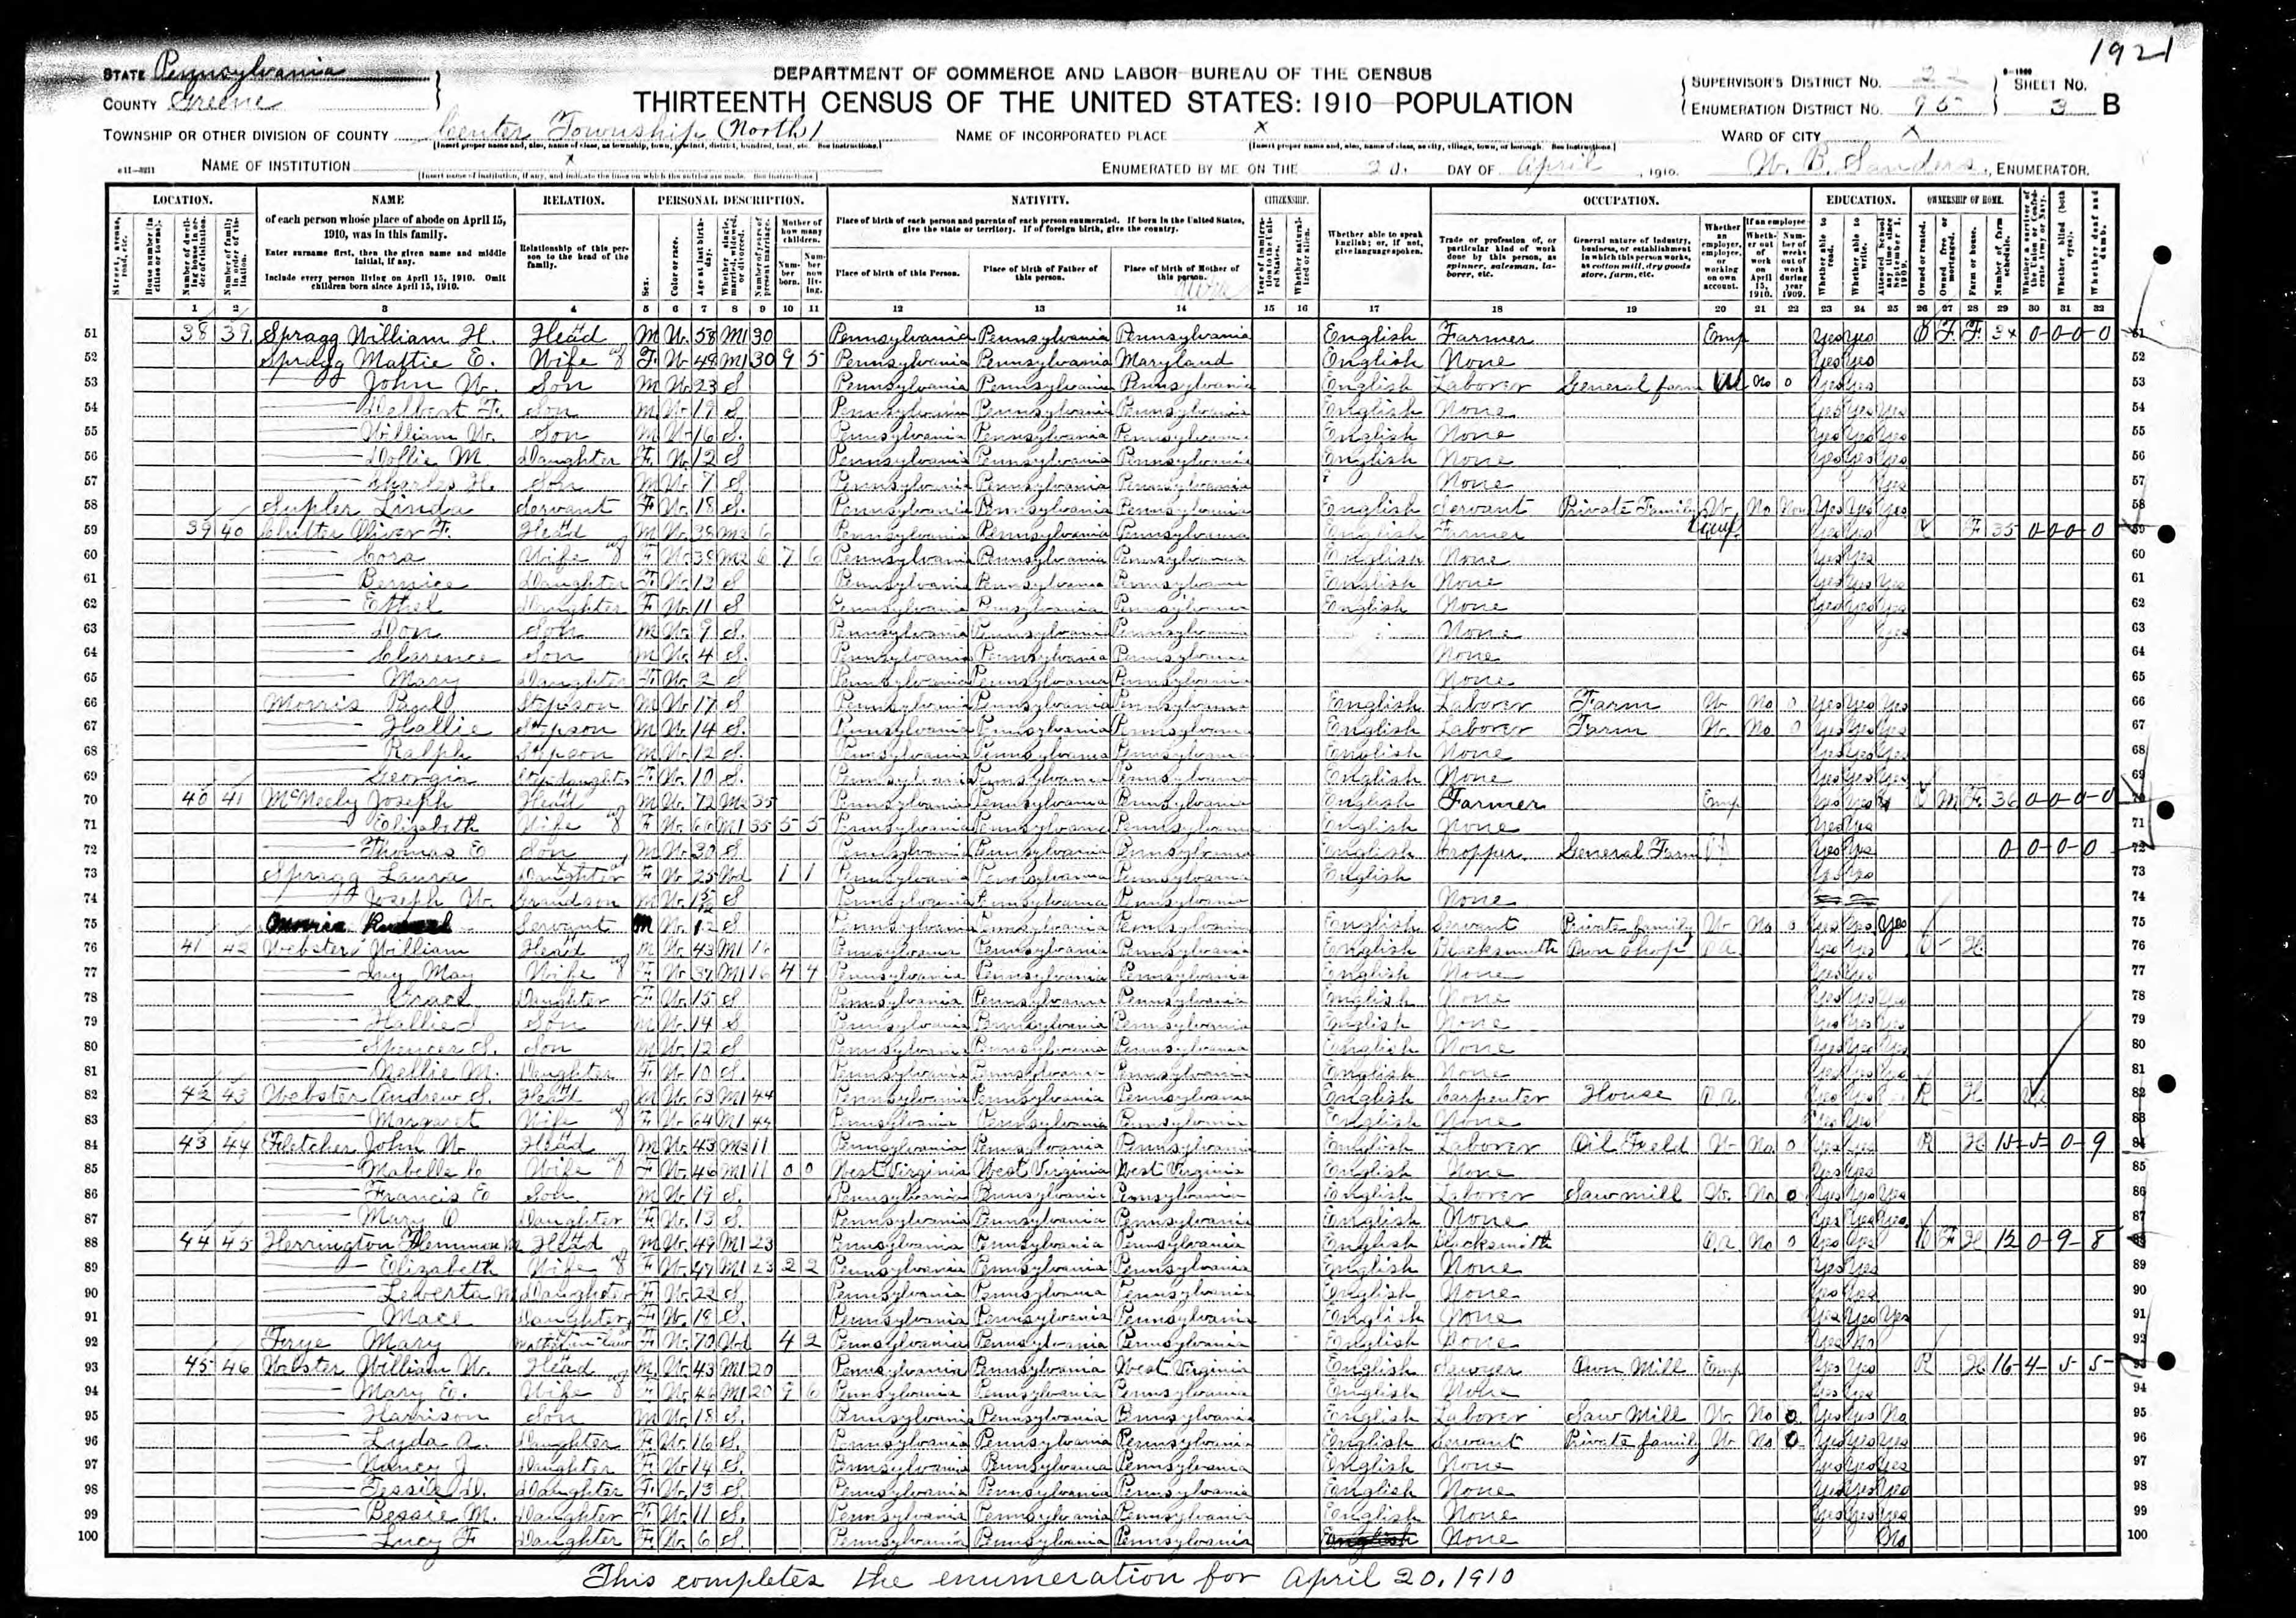 1921
STATE Pennsylvania
COUNTY Greene
DEPARTMENT OF COMMERCE AND LABOR—BUREAU OF THE CENSUS
THIRTEENTH CENSUS OF THE UNITED STATES: 1910—POPULATION
SUPERVISOR'S DISTRICT No. 22 SHEET No.
ENUMERATION DISTRICT No. 95 3 B
TOWNSHIP OR OTHER DIVISION OF COUNTY Center Township (North) NAME OF INCORPORATED PLACE X WARD OF CITY X
NAME OF INSTITUTION X ENUMERATED BY ME ON THE 20. DAY OF April, 1910. W. B. Sanders, ENUMERATOR.
LOCATION. NAME RELATION. PERSONAL DESCRIPTION. NATIVITY. CITIZENSHIP. OCCUPATION. EDUCATION. OWNERSHIP OF HOME.
of each person whose place of abode on April 15, 1910, was in this family.
Enter surname first, then the given name and middle initial, if any.
Include every person living on April 15, 1910. Omit children born since April 15, 1910.
Relationship of this person to the head of the family.
Place of birth of each person and parents of each person enumerated. If born in the United States, give the state or territory. If of foreign birth, give the country.
Place of birth of this Person. Place of birth of Father of this person. Place of birth of Mother of this person.
Whether able to speak English; or, if not, give language spoken.
Trade or profession of, or particular kind of work done by this person, as spinner, salesman, laborer, etc.
General nature of industry, business, or establishment in which this person works, as cotton mill, dry goods store, farm, etc.
1 2 3 4 5 6 7 8 9 10 11 12 13 14 15 16 17 18 19 20 21 22 23 24 25 26 27 28 29 30 31 32
51 38 39 Spragg William H. Head M W 58 M1 30 Pennsylvania Pennsylvania Pennsylvania English Farmer Emp Yes Yes O F F 34 0-0-0-0
52 Spragg Mattie E. Wife F W 48 M1 30 9 5 Pennsylvania Pennsylvania Maryland English None Yes Yes
53 John W. Son M W 23 S Pennsylvania Pennsylvania Pennsylvania English Laborer General farm W No 0 Yes Yes
54 Delbert F. Son M W 19 S Pennsylvania Pennsylvania Pennsylvania English None Yes Yes Yes
55 William W. Son M W 16 S Pennsylvania Pennsylvania Pennsylvania English None Yes Yes Yes
56 Dollie M Daughter F W 12 S Pennsylvania Pennsylvania Pennsylvania English None Yes Yes Yes
57 Charles H. Son M W 7 S Pennsylvania Pennsylvania Pennsylvania None Yes
58 Supler Linda Servant F W 18 S Pennsylvania Pennsylvania Pennsylvania English Servant Private Family W No Yes Yes Yes
59 39 40 Oliver F. Head M W 38 M2 6 Pennsylvania Pennsylvania Pennsylvania English Farmer Emp Yes Yes F 35 0-0-0-0
60 Cora Wife F W 38 M2 6 7 6 Pennsylvania Pennsylvania Pennsylvania English None Yes Yes
61 Bernice Daughter F W 13 S Pennsylvania Pennsylvania Pennsylvania English None Yes Yes Yes
62 Ethel Daughter F W 11 S Pennsylvania Pennsylvania Pennsylvania English None Yes Yes Yes
63 Don Son M W 9 S Pennsylvania Pennsylvania Pennsylvania None Yes
64 Clarence Son M W 4 S Pennsylvania Pennsylvania Pennsylvania None
65 Mary Daughter F W 2 S Pennsylvania Pennsylvania Pennsylvania None
66 Morris Stepson M W 17 S Pennsylvania Pennsylvania Pennsylvania English Laborer Farm W No 0 Yes Yes Yes
67 Hallie Stepson M W 14 S Pennsylvania Pennsylvania Pennsylvania English Laborer Farm W No 0 Yes Yes Yes
68 Ralph Stepson M W 12 S Pennsylvania Pennsylvania Pennsylvania English None Yes Yes Yes
69 Georgia Stepdaughter F W 10 S Pennsylvania Pennsylvania Pennsylvania English None Yes Yes Yes
70 40 41 McNeely Joseph Head M W 72 M2 35 Pennsylvania Pennsylvania Pennsylvania English Farmer Emp Yes Yes O M F 36 0-0-0-0
71 Elizabeth Wife F W 66 M1 35 5 5 Pennsylvania Pennsylvania Pennsylvania English None Yes Yes
72 Thomas E Son M W 30 S Pennsylvania Pennsylvania Pennsylvania English Cropper General Farm Yes Yes 0-0-0-0
73 Spragg Laura Daughter F W 25 Wd 1 1 Pennsylvania Pennsylvania Pennsylvania English Yes Yes
74 Joseph W. Grandson M W S Pennsylvania Pennsylvania Pennsylvania None
75 Servant M W 12 S Pennsylvania Pennsylvania Pennsylvania English Servant Private family W No 0 Yes Yes Yes
76 41 42 Webster William Head M W 43 M1 16 Pennsylvania Pennsylvania Pennsylvania English Blacksmith Own Shop O.A. Yes Yes O H
77 May Wife F W 37 M1 16 4 4 Pennsylvania Pennsylvania Pennsylvania English None Yes Yes
78 Grace Daughter F W 15 S Pennsylvania Pennsylvania Pennsylvania English None Yes Yes Yes
79 Hallie Son M W 14 S Pennsylvania Pennsylvania Pennsylvania English None Yes Yes Yes
80 Spencer S. Son M W 12 S Pennsylvania Pennsylvania Pennsylvania English None Yes Yes Yes
81 Nellie M. Daughter F W 10 S Pennsylvania Pennsylvania Pennsylvania English None Yes Yes Yes
82 42 43 Webster Andrew S. Head M W 63 M1 44 Pennsylvania Pennsylvania Pennsylvania English Carpenter House O.A. Yes Yes R H
83 Margaret Wife F W 64 M1 44 Pennsylvania Pennsylvania Pennsylvania English None Yes Yes
84 43 44 Fletcher John W. Head M W 43 M2 11 Pennsylvania Pennsylvania Pennsylvania English Laborer Oil Field W No 0 Yes Yes R H 15-5-0-9
85 Mabelle C Wife F W 46 M1 11 0 0 West Virginia West Virginia West Virginia English None Yes Yes
86 Francis E Son M W 19 S Pennsylvania Pennsylvania Pennsylvania English Laborer Sawmill W No 0 Yes Yes Yes
87 Mary O Daughter F W 13 S Pennsylvania Pennsylvania Pennsylvania English None Yes Yes Yes
88 44 45 Herrington Head M W 49 M1 23 Pennsylvania Pennsylvania Pennsylvania English Blacksmith O.A. No 0 Yes Yes O F H 12 0-9-8
89 Elizabeth Wife F W 47 M1 23 2 2 Pennsylvania Pennsylvania Pennsylvania English None Yes Yes
90 Leverta M Daughter F W 22 S Pennsylvania Pennsylvania Pennsylvania English None Yes Yes
91 Mace Daughter F W 18 S Pennsylvania Pennsylvania Pennsylvania English None Yes Yes Yes
92 Frye Mary Mother-in-law F W 70 Wd 4 2 Pennsylvania Pennsylvania Pennsylvania English None Yes No
93 45 46 Webster William W. Head M W 43 M1 20 Pennsylvania Pennsylvania West Virginia English Sawyer Own Mill Emp Yes Yes R H 16-4-5-5-
94 Mary E. Wife F W 40 M1 20 9 6 Pennsylvania Pennsylvania Pennsylvania English None Yes Yes
95 Harrison Son M W 18 S Pennsylvania Pennsylvania Pennsylvania English Laborer Saw Mill W No 0 Yes Yes No
96 Lyda A. Daughter F W 16 S Pennsylvania Pennsylvania Pennsylvania English Servant Private family W No 0 Yes Yes Yes
97 Nancy J Daughter F W 14 S Pennsylvania Pennsylvania Pennsylvania English None Yes Yes Yes
98 Jessie D. Daughter F W 13 S Pennsylvania Pennsylvania Pennsylvania English None Yes Yes Yes
99 Bessie M. Daughter F W 11 S Pennsylvania Pennsylvania Pennsylvania English None Yes Yes Yes
100 Lucy F Daughter F W 6 S Pennsylvania Pennsylvania Pennsylvania English None No
This completes the enumeration for April 20, 1910